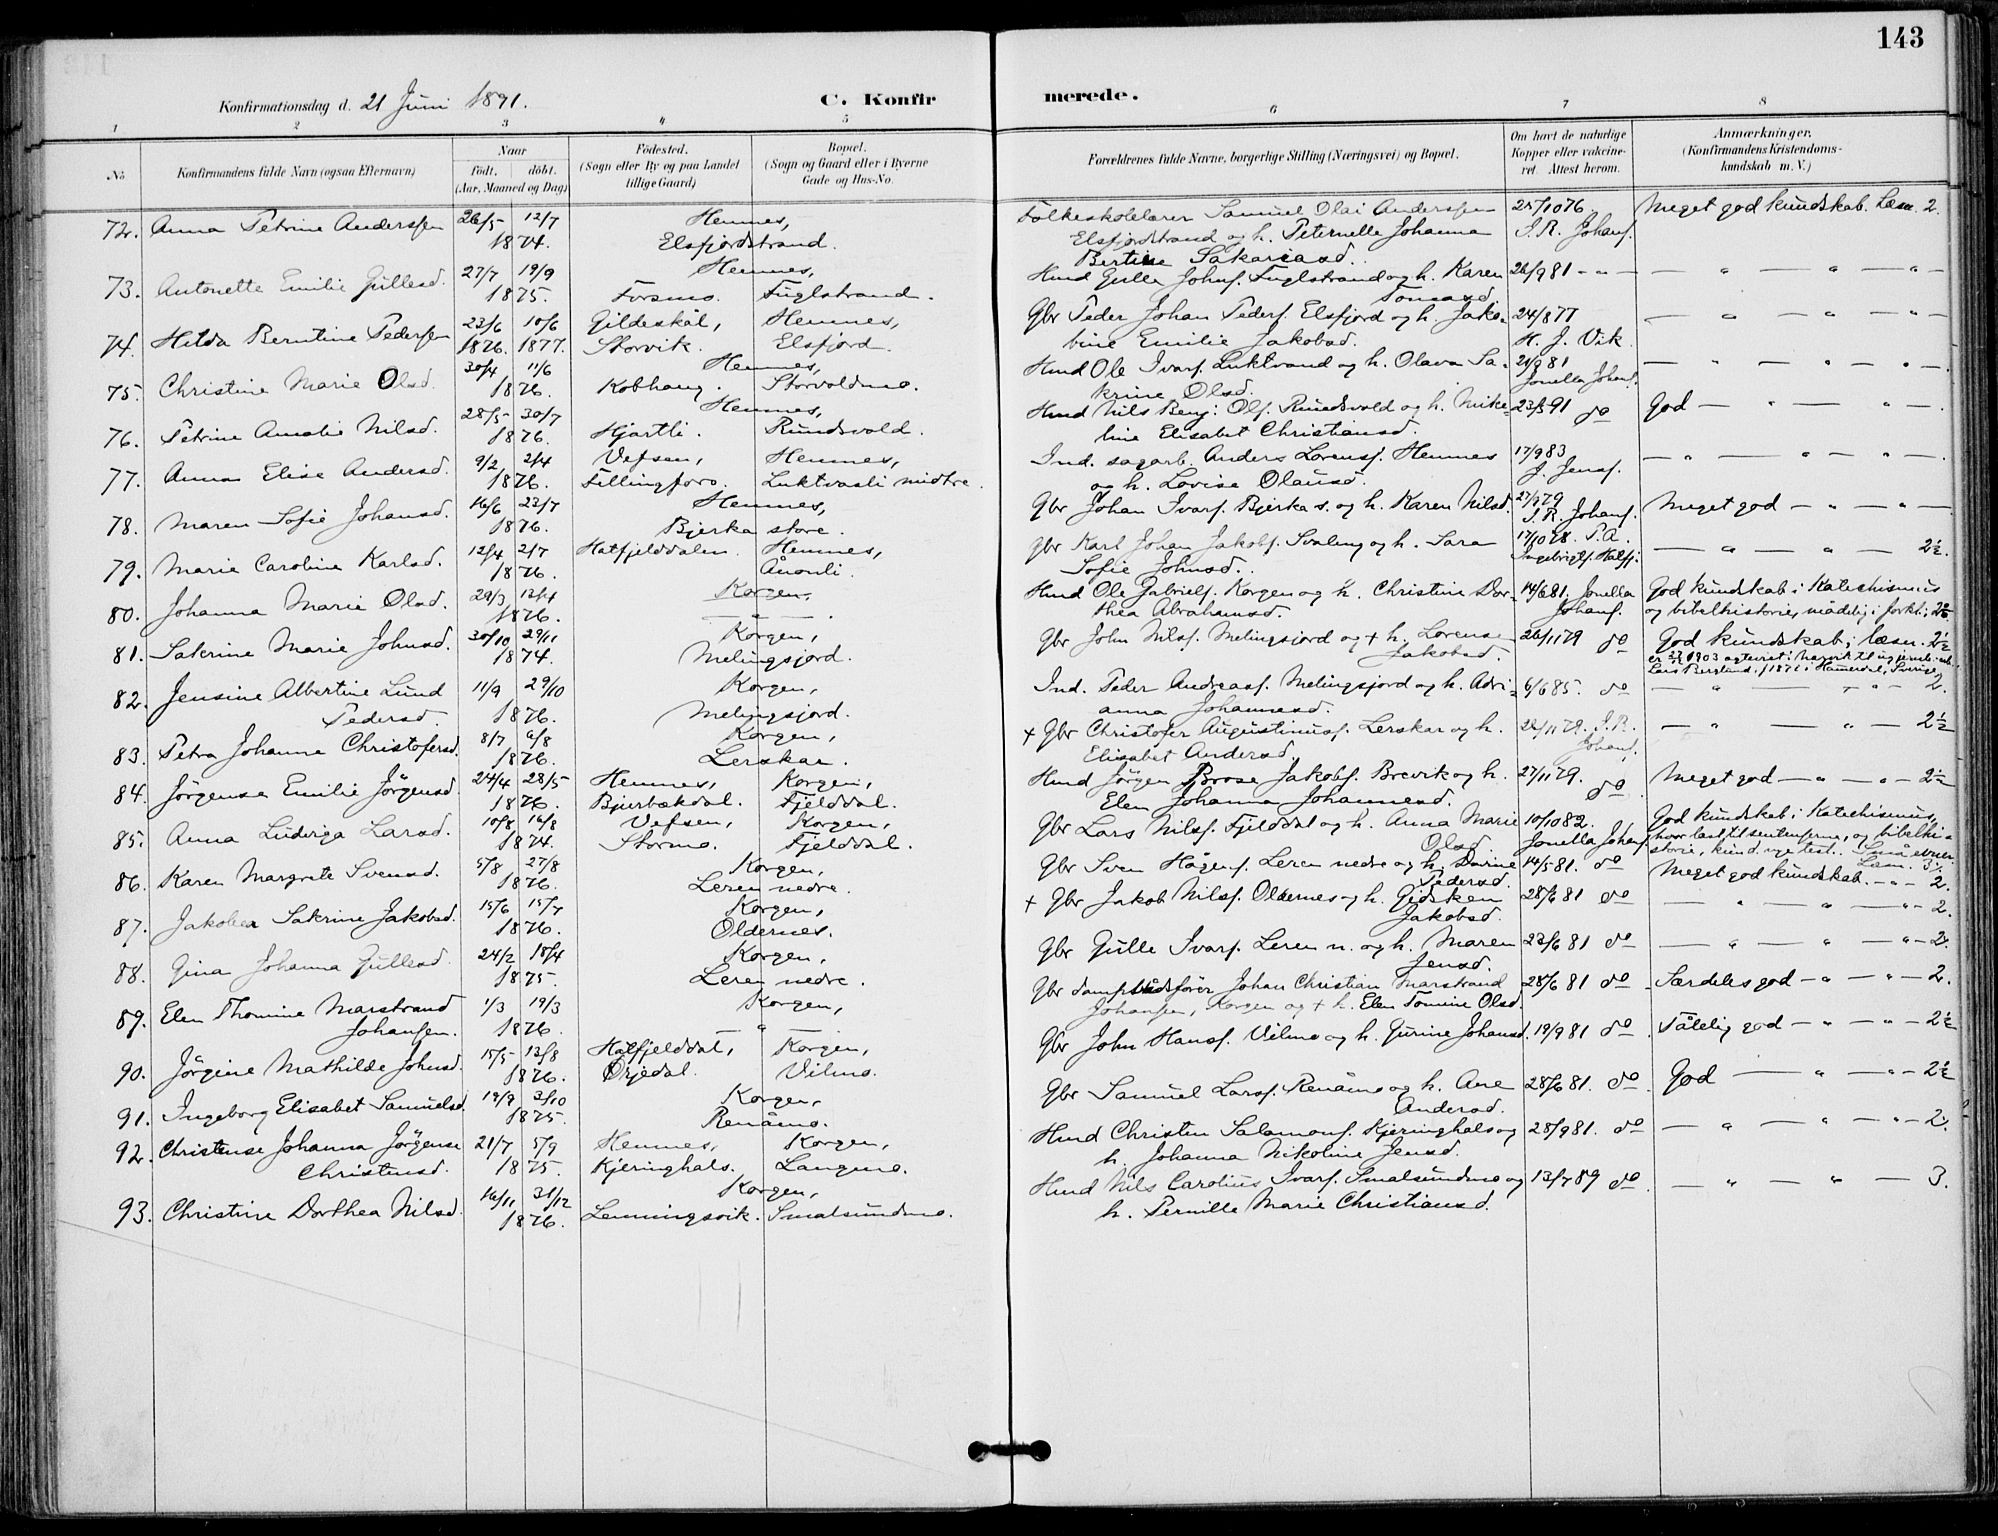 143
Konfirmationsdag d. 21 Juni 1891.
C. Konfirmerede.
1 2 3 4 5 6 7 8
No
Konfirmandens fulde Navn (ogsaa Efternavn)
Naar
födt. döbt.
(Aar, Maaned og Dag)
Födested.
(Sogn eller By og paa Landet
tillige Gaard)
Bopæl.
(Sogn og Gaard eller i Byerne
Gade og Hus-No.
Forældrenes fulde Navne, borgerlige Stilling (Næringsvei) og Bopæl.
Om havt de naturlige
Kopper eller vakcine-
ret. Attest herom.
Anmærkninger.
(Konfirmandens Kristendoms-
kundskab m. V.)
72. Anna Petrine Anderssen 26/5 12/7 1874. Hemnes, Elsfjordstrand. Folkeskolelærer Samuel Olai Anderssen 25/10 76 Meget god kundskab. Læsn. 2.
Elsfjordstrand og h. Peternelle Johanna J. R. Johans.
Bertine Sakariasd.
73. Antonette Emilie Gullesd. 27/7 19/9 1875. Hemnes, Forsmo. Fuglstrand. Hmd Gulle Johns. Fuglstrand og h. Karen 26/9 81 - " - — " — " — " —
Tomasd.
74. Hilda Berntine Pedersen 23/6 10/6 1876. 1877. Gildeskål, Storvik. Hemnes, Elsfjord. Gbr Peder Johan Peders. Elsfjord og h. Jako- 24/8 77 — " — " — " —
bine Emilie Jakobsd. H. J. Vik.
75. Christine Marie Olsd. 30/4 11/6 1876. Hemnes, Kobhaug. Storvoldmo. Hmd Ole Ivars. Luktvand og h. Olava Sa- 21/9 81 — " — " — " —
krine Olsd. Jonella Johans.
76. Petrine Amalie Nilsd. 28/5 30/7 1876. Hemnes, Hjartli. Rundsvold. Hmd Nils Benj: Ols. Rundsvold og h. Mike- 23/5 91 do God — " — " — " —.
line Elisabet Christiansd.
77. Anna Elise Andersd. 9/2 2/4 1876. Vefsen, Fillingfors. Hemnes, Luktvasli midtre. Ind. sagarb. Anders Lorens. Hemnes 17/9 83 — " — " — " —.
og h. Lovise Olausd. J. Jens.
78. Maren Sofie Johansd. 16/6 23/7 1876. Hemnes, Bjerka store. Gbr Johan Ivars. Bjerka s. og h. Karen Nilsd. 27/9 79 Meget god — " — " —
J. R. Johans.
79. Marie Caroline Karlsd. 12/4 2/7 1876. Hatfjelddalen. Hemnes, Ånonli. Gbr Karl Johan Jakobs. Svaleng og h. Sara 17/10 78. P. A. — " — " — 2½.
Sofie Johnsd. Ingebrigts. Hatfj.
80. Johanna Marie Olsd. 29/3 12/4 1876. Korgen, — " — Hmd Ole Gabriels. Korgen og h. Christine Dor- 14/6 81. Jonella God kundskab i Katechismus
thea Abrahamsd. Johans. og bibelhistorie, mådelig i forkl.; 2½
81. Sakrine Marie Johnsd. 30/10 29/11 1874. Korgen, Melingsjord. Gbr John Nils. Melingsjord og + h. Lorense 26/11 79 do God kundskab; læsn. 2½
Jakobsd. 1903 agteviet i Narvik til
Lars Berglund, f 1871 i Hamerdal, Sverige
82. Jensine Albertine Lund Pedersd. 11/9 29/10 1876. Korgen, Melingsjord. Ind. Peder Andreass. Melingsjord og h. Adri- 6/6 85. do — " — " — 2.
anna Johannesd.
83. Petra Johanna Christofersd. 8/7 6/8 1876. Korgen, Lerskar. + Gbr Christofer Augustinus. Lerskar og h. 26/11 79. J. R. — " — " — 2½
Elisabet Andersd. Johans.
84. Jörgensa Emilie Jörgensd 24/4 28/5 1876. Hemnes, Bjurbækdal. Korgen, Fjelddal. Hmd Jörgen Brose Jakobs. Brevik og h. 27/11 79. do Meget god — " — " — 2½
Elen Johanna Johannesd.
85. Anna Ludviga Larsd. 10/8 16/8 1874. Vefsen, Stormo. Korgen, Fjelddal. Gbr Lars Nils. Fjelddal og h. Anna Marie 10/10 82. God kundskab i Katechismus,
Olsd. Jonella Johans. hvor læst til sentenserne, og bibelhi-
storie, kund. nye test. Små evner. Læsn. 3½
86. Karen Margrete Svensd. 5/8 27/8 1876. Korgen, Leren nedre. Gbr Sven Hågens. Leren nedre og h. Davine 14/5 81. do Meget god kundskab. - " - 2.
Pedersd.
87. Jakobea Sakrine Jakobsd. 15/6 15/7 1876. Korgen, Oldernes. + Gbr Jakob Nils. Oldernes og h. Gidsken 28/6 81 do — " — " — " — 2.
Jakobsd.
88. Gina Johanna Gullesd. 24/2 18/4 1875. Korgen, Leren nedre. Gbr Gulle Ivars. Leren n. og h. Maren 22/6 81 do — " — " — " — 2.
Jensd.
89. Elen Thomine Marstrand Johansen. 1/3 19/3 1876. Korgen, — " — Gbr Dampskibsfører Johan Christian Marstrand 28/6 81 do Særdeles god — " — " — 2.
Johansen, Korgen og + h. Elen Tomine Olsd.
90. Jörgine Mathilde Johnsd. 15/5 13/8 1876. Hatfjelddal, Örjedal. Korgen, Vilmo. Gbr John Hans. Vilmo og h. Gurine Johansd. 19/9 81 do Tålelig god — " — " — 2½
91. Ingeborg Elisabet Samuelsd 19/9 3/10 1875. Korgen, Renåmo. Gbr Samuel Lars. Renåmo og h. Ane 28/6 81. do God — " — " — 2½
Andersd.
92. Christense Johanna Jörgense Christensd. 21/7 5/9 1875. Hemnes, Kjeringhals. Korgen, Langmo. Hmd Christen Salamons. Kjeringhals og 28/9 81. do — " — " — " — 2.
h. Johanna Nikoline Jensd.
93. Christine Dorthea Nilsd. 16/11 31/12 1876. Korgen, Lenningsvik. Smalsundmo. Hmd Nils Carolius Ivars. Smalsundmo og 13/7 89 do — " — " — 3.
h. Pernille Marie Christiansd.